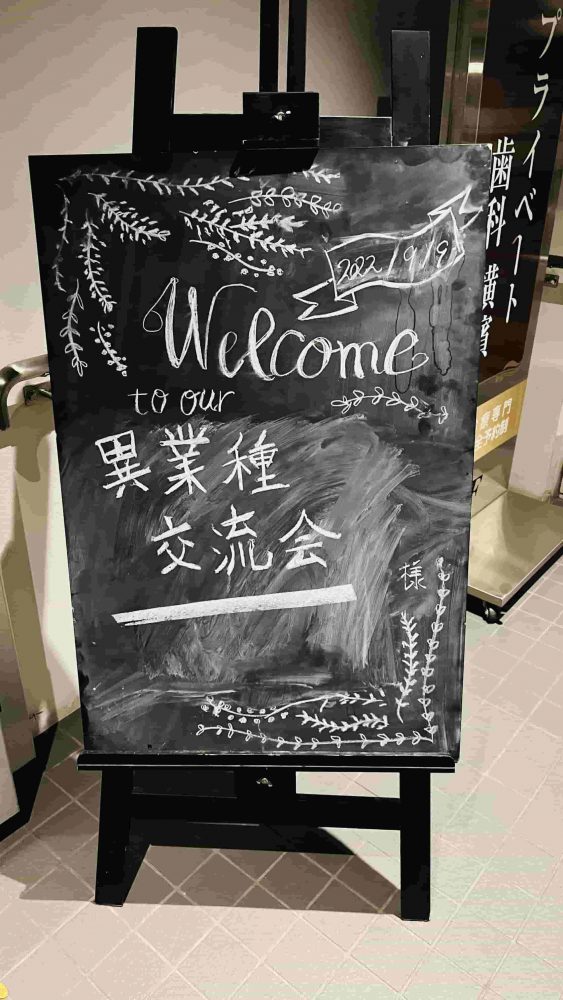 2022/9/9
Welcome
to our
異業種
交流会
様
プライベート
歯科 横濱
療専門
全予約制